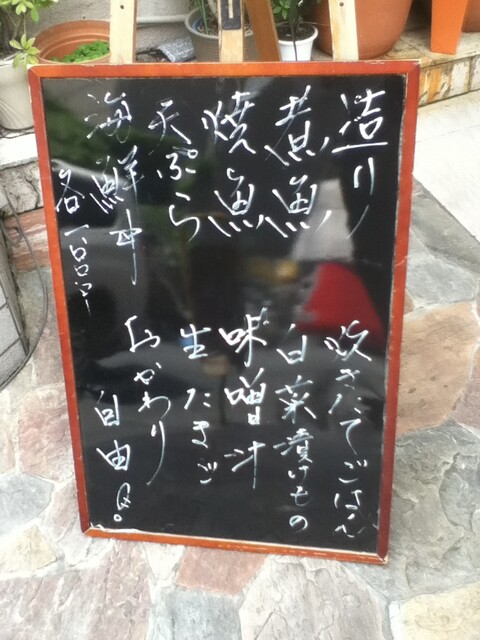 造り
煮魚
焼魚
天ぷら
海鮮丼
各一品
炊きたてごはん
白菜漬けもの
味噌汁
生たまご
おかわり
自由